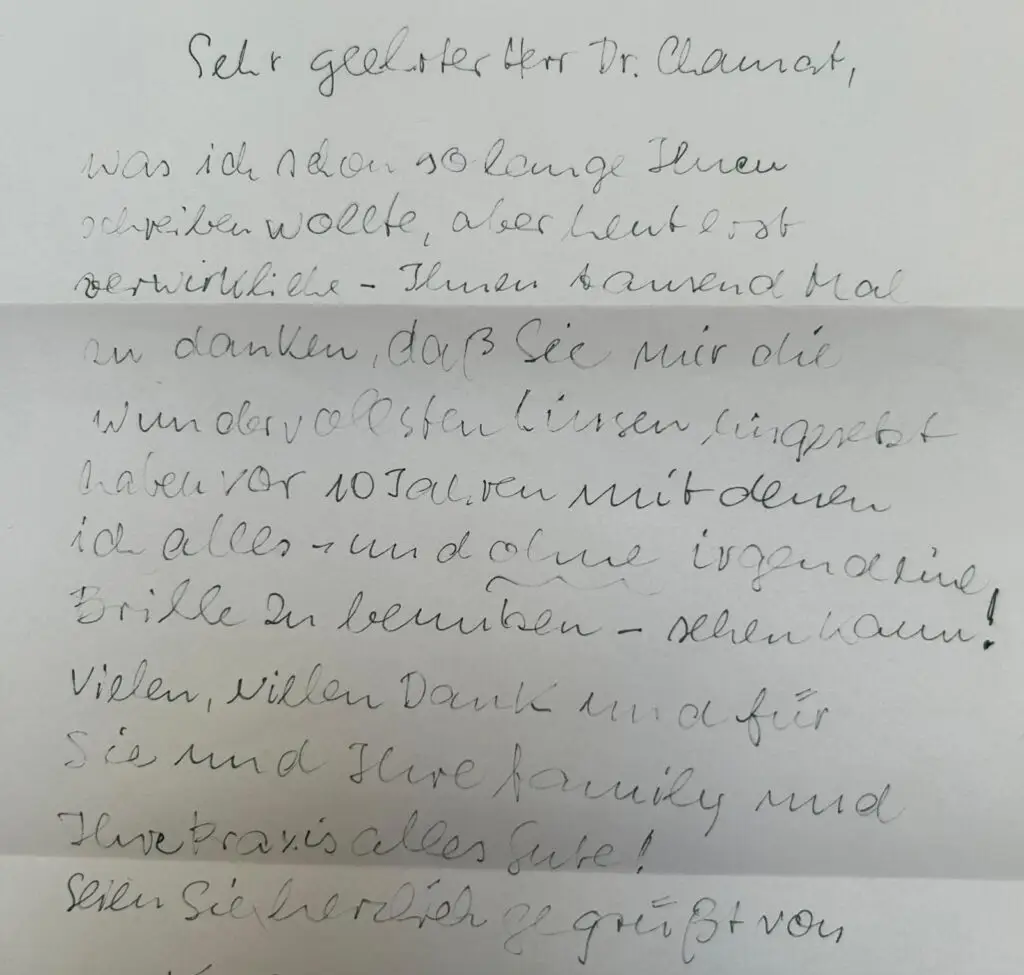 Sehr geehrter Herr Dr. Chamat,
was ich schon so lange Ihnen
schreiben wollte, aber heut erst
verwirkliche - Ihnen tausend Mal
zu danken, daß Sie mir die
wundervollsten Linsen eingesetzt
haben vor 10 Jahren mit denen
ich alles - und ohne irgendeine
Brille zu benutzen - sehen kann!
Vielen, vielen Dank und für
Sie und Ihre family und
Ihre Praxis alles Gute!
Seien Sie herzlich gegrüßt von